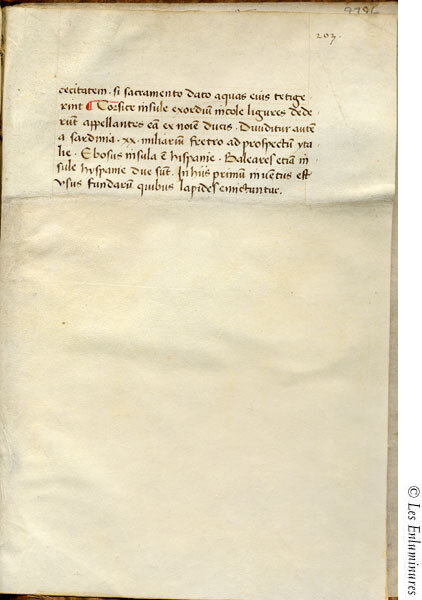 9796
203.
cecitatem. si sacramento dato aquas eius tetige
rint ¶ Corsice insule exordiũ incole ligures dede
rũt appellantes eã ex noĩe ducis. Diuiditur autẽ
a sardinia .xx. miliariũ fretro ad prospectũ yta
lie. Ebosus insula ẽ hispanie. Baleares etiã in
sule hyspanie due sũt. In hiis primum inuentus est
vsus fundarũ quibus lapides emictuntur.
© Les Enluminures